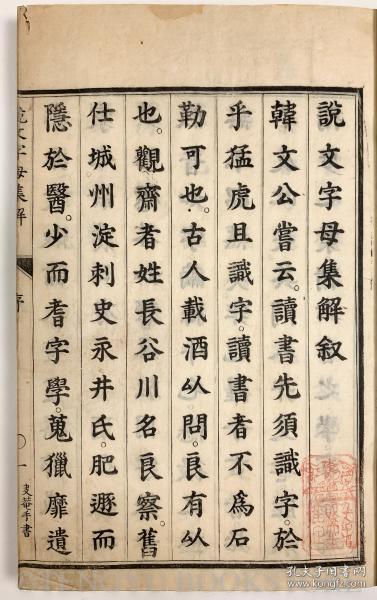 說文字母集解叙
韓文公嘗云。讀書先須識字。於
乎猛虎且識字。讀書者不為石
勒可也。古人載酒以問。良有以
也。觀齋者姓長谷川名良察。舊
仕城州淀刺史永井氏。肥遯而
隱於醫。少而耆字學。蒐獵靡遺
說文字母集解
序
一
孔夫子旧书网